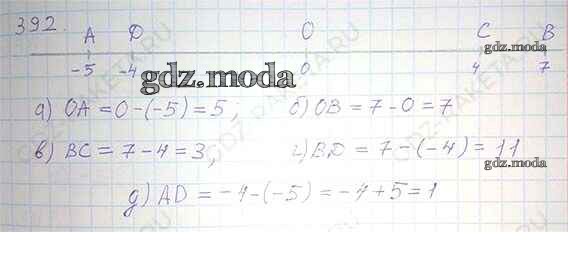 392.
A D O C B
-5 -4 0 4 7
gdz.moda
gdz.moda
а) OA = 0-(-5) = 5; б) OB = 7-0 = 7
в) BC = 7-4 = 3, г) BD = 7-(-4) = 11
gdz.moda
д) AD = -4-(-5) = -4+5 = 1